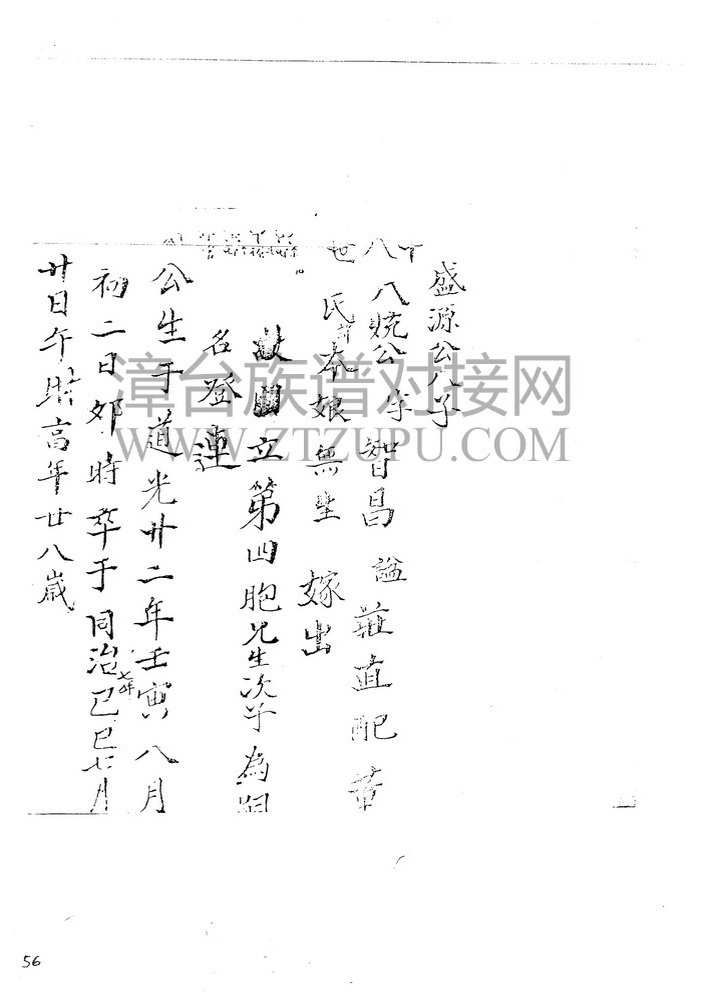 十八世
盛源公八子
八焼公 字智昌 諡莊直配黃
氏 本娘無生 嫁出
故 立第四胞兄生次子為嗣
名登連
公生于道光廿二年壬寅八月
初二日卯時卒于同治七年己巳七月
廿日午時高年廿八歲
漳台族谱对接网
WWW.ZTZUPU.COM
56